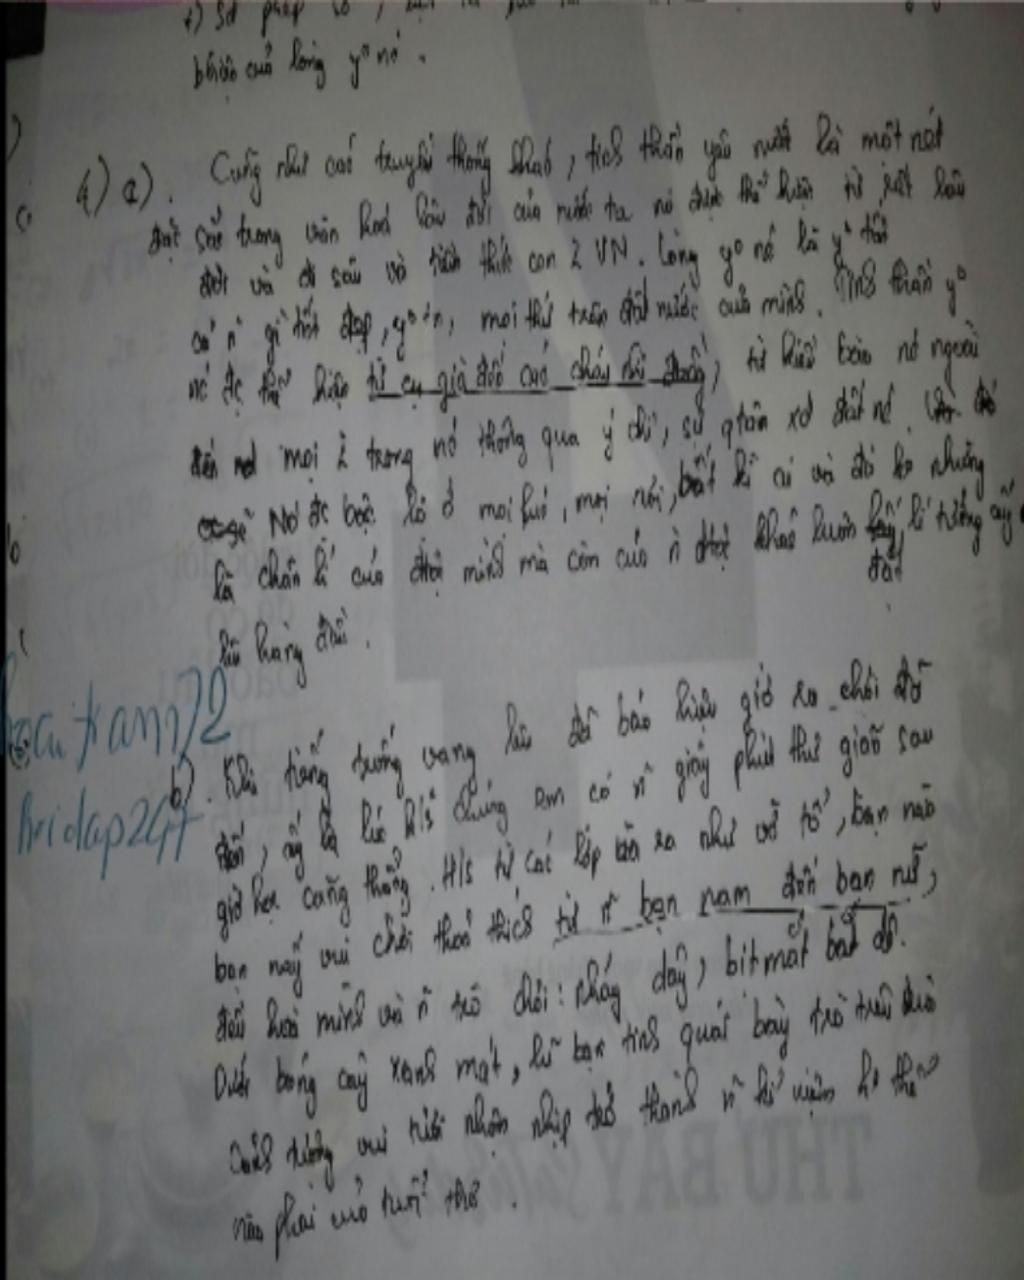 bhiệu của lòng yº nó.
4) a). Cũng như các truyền thống khác, tinh thần yêu nước là một nét
đặc sắc trong văn hoá lâu đời của nước ta nó được thể hiện từ rất lâu
đời và đi sâu vô tiềm thức con VN. Lòng yº nó là yº tất
cả n~ gì tốt đẹp, yº +n, mọi thứ trên đất nước của mình. Tinh thần yº
nó đc thể hiện từ cụ già đến các cháu nhi đồng, từ kiều bào nó ngoài
đến mọi trong nó thông qua ý chí, sự qtâm xd đất nó.
Nó đc bộc lộ ở mọi lúc, mọi nơi, bất kì ai và đó ko những
là chân lí của mình mà còn của n~ khác luôn đặt lí tưởng ấy
lên hàng đầu.
b). Khi tiếng trống vang lên đã báo hiệu giờ ra chơi đã
đến, ấy là lúc h/s chúng em có n~ giây phút thư giãn sau
giờ học căng thẳng. H/s từ các lớp ùa ra như vỡ tổ, bạn nào
bạn nấy vui chơi thoả thích từ n~ bạn nam đến bạn nữ,
đều hoà mình và n~ trò chơi: nhảy dây, bịt mắt bắt dê.
Dưới bóng cây xanh mát, lũ bạn tinh quái bày trò trêu đùa
cảnh tượng vui tươi nhộn nhịp trở thành n~ kỉ niệm ko thể
nào phai của tuổi thơ.
tram72
hoidap247
THỨ BẢY Saturday